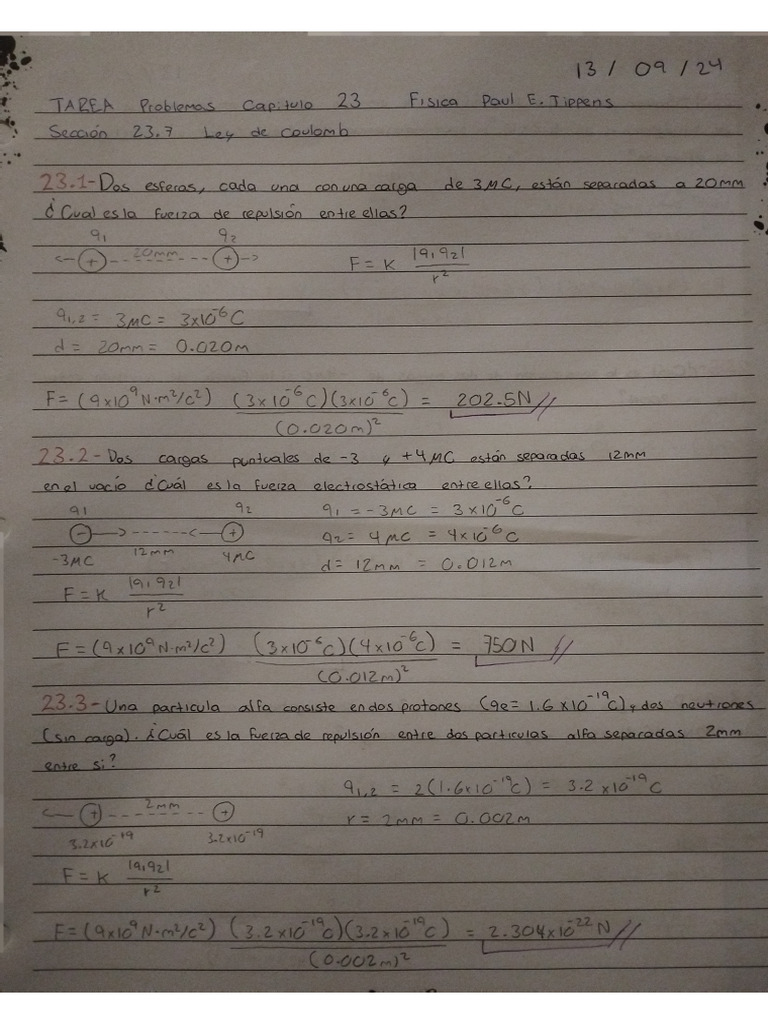 13 / 09 / 24
TAREA Problemas Capitulo 23 Fisica Paul E. Tippens
Sección 23.7 Ley de Coulomb
23.1- Dos esferas, cada una con una carga de 3μC, están separadas a 20mm
¿Cual es la fuerza de repulsión entre ellas?
q1 q2
+ 20mm +
F = K |q1q2| / r²
q1,2 = 3μC = 3x10⁻⁶C
d = 20mm = 0.020m
F = (9x10⁹N·m²/c²) (3x10⁻⁶C)(3x10⁻⁶C) / (0.020m)² = 202.5N
23.2- Dos cargas puntuales de -3 y +4μC están separadas 12mm
en el vacío ¿Cuál es la fuerza electrostática entre ellas?
q1 q2
- 12mm +
-3μC 4μC
q1 = -3μC = 3x10⁻⁶C
q2 = 4μC = 4x10⁻⁶C
d = 12mm = 0.012m
F = K |q1q2| / r²
F = (9x10⁹N·m²/c²) (3x10⁻⁶C)(4x10⁻⁶C) / (0.012m)² = 750N
23.3- Una particula alfa consiste en dos protones (qe = 1.6x10⁻¹⁹C), y dos neutrones
(sin carga). ¿Cuál es la fuerza de repulsión entre dos particulas alfa separadas 2mm
entre si?
q1,2 = 2(1.6x10⁻¹⁹C) = 3.2x10⁻¹⁹C
+ 2mm +
3.2x10⁻¹⁹ 3.2x10⁻¹⁹
r = 2mm = 0.002m
F = K |q1q2| / r²
F = (9x10⁹N·m²/c²) (3.2x10⁻¹⁹C)(3.2x10⁻¹⁹C) / (0.002m)² = 2.304x10⁻²²N